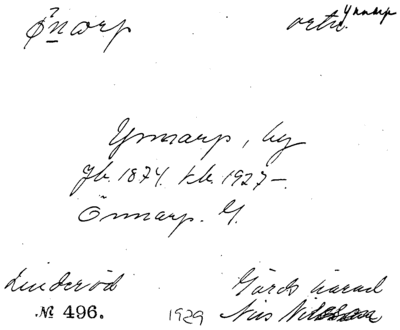 Ynnarp
ortn.
Ynnarp, by
Jb. 1874. kb. 1927–.
Önnarp. G.
Linderöd Gärds härad
№ 496. 1929 Nils Nilsson